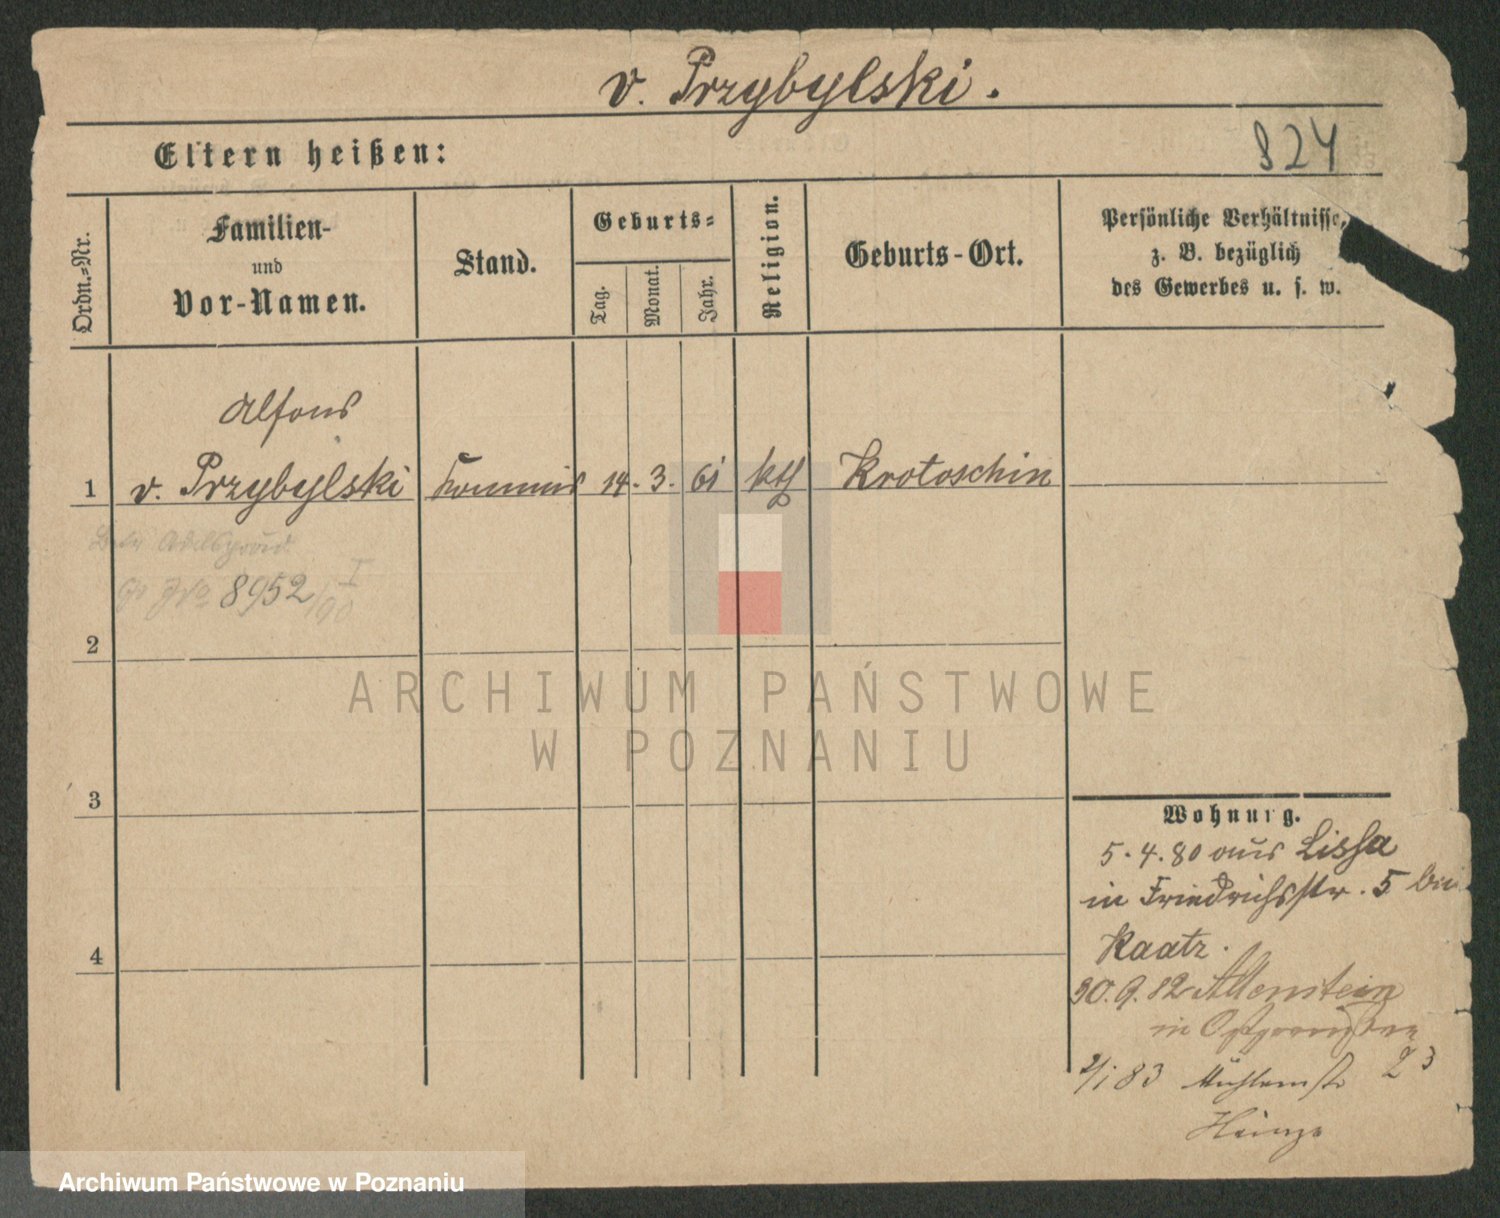 v. Przybylski.
Eltern heißen:
824
Ordn.=Nr.
Familien-
und
Vor-Namen.
Stand.
Geburts=
Tag.
Monat.
Jahr.
Religion.
Geburts-Ort.
Persönliche Verhältnisse,
z. B. bezüglich
des Gewerbes u. s. w.
Alfons
1 v. Przybylski Kommis 14. 3. 61 kth Krotoschin
8952/90 I
2
3
4
Wohnung.
5.4.80 aus Lissa
in Friedrichsstr. 5 bei
Kaatz.
30.9.82 Allenstein
in Ostpreußen
83 Mühlenstr 23
Heinze
ARCHIWUM PAŃSTWOWE
W POZNANIU
Archiwum Państwowe w Poznaniu